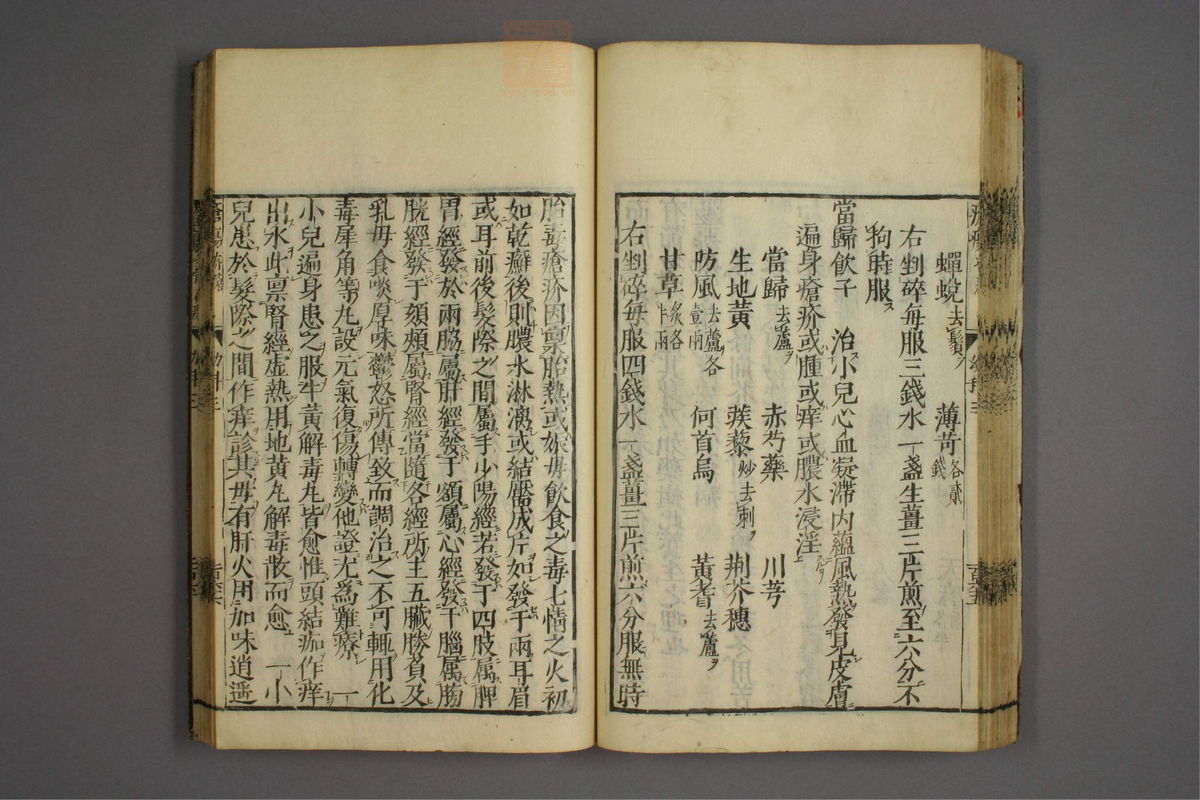 蟬蛻去鬚 薄苛各貳錢
右剉碎每服三錢水一盞生薑三片煎至六分不
狗時服
當歸飲子 治小兒心血凝滯内蘊風熱發見皮膚
遍身瘡疥或腫或痒或膿水浸淫
當歸去蘆 赤芍藥 川芎
生地黃 蒺藜炒去刺 荆芥穗
防風去蘆各壹兩 何首烏 黃耆去蘆
甘草炙各半兩
右剉碎每服四錢水一盞薑三片煎六分服無時
胎毒瘡疥因禀胎熱或娠母飲食之毒七情之火初
如乾癬後則膿水淋漓或結靨成片如發于兩耳眉
或耳前後髮際之間屬手少陽經若發于四肢属脾
胃經發於兩脇屬肝經發于額屬心經發于腦属膀
胱經發于頦頰屬腎經當隨各經所主五臟勝負及
乳母食啖厚味鬱怒所傳致而調治之不可輒用化
毒犀角等丸設元氣復傷轉變他證尤爲難療 一
小兒遍身患之服牛黃解毒丸皆愈惟頭結痂作痒
出水此禀腎經虛熱用地黄丸解毒散而愈 一小
兒患於髮際之間作痒診其母有肝火用加味逍遥